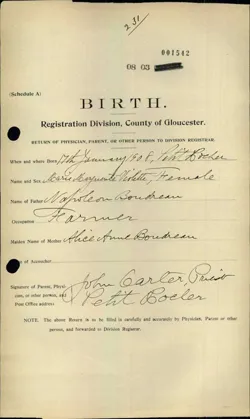 231
001542
08 03
(Schedule A)
BIRTH.
Registration Division, County of Gloucester.
RETURN OF PHYSICIAN, PARENT, OR OTHER PERSON TO DIVISION REGISTRAR.
When and where Born, 17th January 1908, Petit Rocher
Name and Sex, Marie Marguerite Violette, Female
Name of Father Napoleon Boudreau
Occupation Farmer
Maiden Name of Mother Alice Anne Boudreau
Name of Accoucher
Signature of Parent, Physician, or other person, and Post Office address
John Carter, Priest
Petit Rocher
NOTE. The above Return is to be filled in carefully and accurately by Physician, Parent or other
person, and forwarded to Division Registrar.